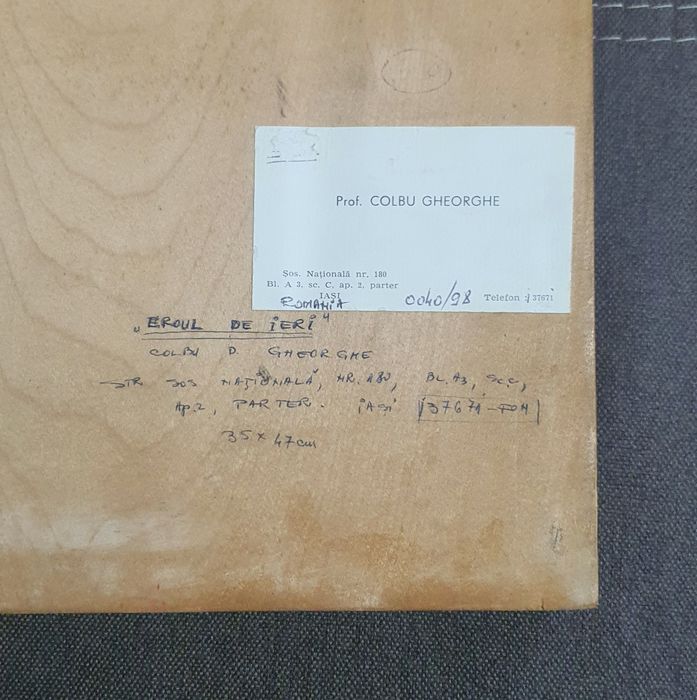 Prof. COLBU GHEORGHE
Șos. Națională nr. 180
Bl. A 3, sc. C, ap. 2, parter
IAȘI
ROMANIA
0040/98 Telefon : 37671
„EROUL DE IERI”
COLBU D. GHEORGHE
STR SOS NAȚIONALĂ, NR. 180, BL. A3, SC. C,
AP. 2, PARTER. IAȘI 37671
35 x 47 cm